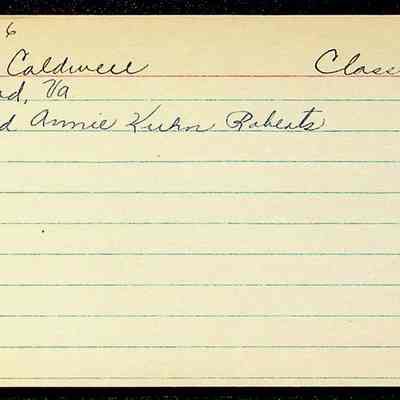 6
Caldwell Class
d, Va
d Annie Kuhn Roberts